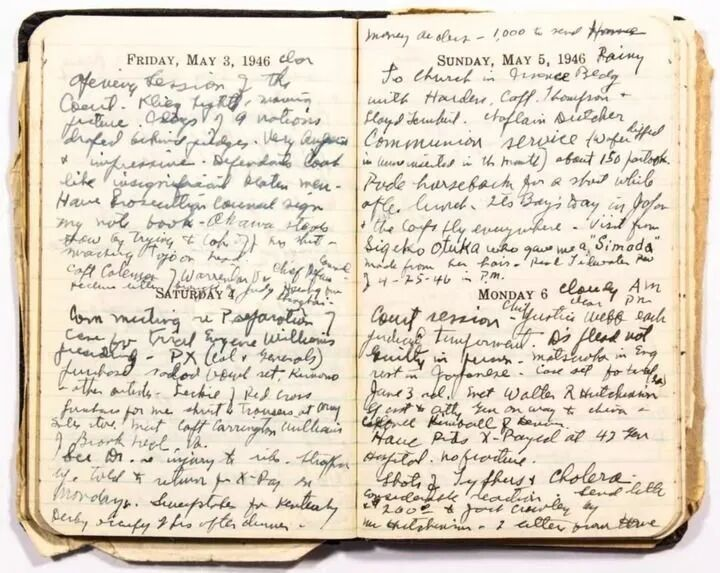 FRIDAY, MAY 3, 1946 clear
Opening Session of the
Court. Klieg lights, moving
picture. Flags of 9 nations
draped behind judges. Very
& impressive. Defendants look
like insignificant beaten men -
Have Prosecution Counsel sign
my note book - Okawa steals
show by trying to take off his shirt -
smacking Tojo on head
Capt Coleman of Warrenton Va Chief Defense Counsel
SATURDAY 4
Com meeting re Preparation of
Case for Trial Eugene Williams
presiding - PX (Col & Generals)
purchased salad bowl set. Kimono
& other articles - of Red Cross
purchase for me shirt & trousers at Army
Sales store. Met Capt Carrington Williams
of Brook Va.
See Dr. re injury to ribs.
up. Told to return for X-Ray on
Monday. Sweepstake for Kentucky
Derby 2 hrs after dinner.
money orders - 1,000 to send Home
SUNDAY, MAY 5, 1946 Rainy
To Church in Finance Bldg
with Harders, Capt. Thompson &
Lloyd Chaplain
Communion service (wafer dipped
in wine inserted in the mouth) about 150 partook.
Rode horseback for a short while
after lunch. It's Boy's Day in Japan
& the Carp fly everywhere - Visit from
Sigeko Otuka who gave me a "Simada"
made from her hair - Read Tidewater Rev
of 4-25-46 in P.M.
MONDAY 6 cloudy AM
clear PM
Court session Chief Justice Webb
judicial temperament. D's plead not
guilty in person - Matsuoka in Eng
rest in Japanese. Case set for trial
June 3rd. Met Walter R Hutchinson
Asst to Atty Gen on way to China -
Colonel
Have Ribs X-Rayed at 42 Gen
Hospital. no fracture.
Shots of Typhus & Cholera -
considerable reaction. Send little
$200.00 & by
Mr Hutchinson - 2 letters from Home